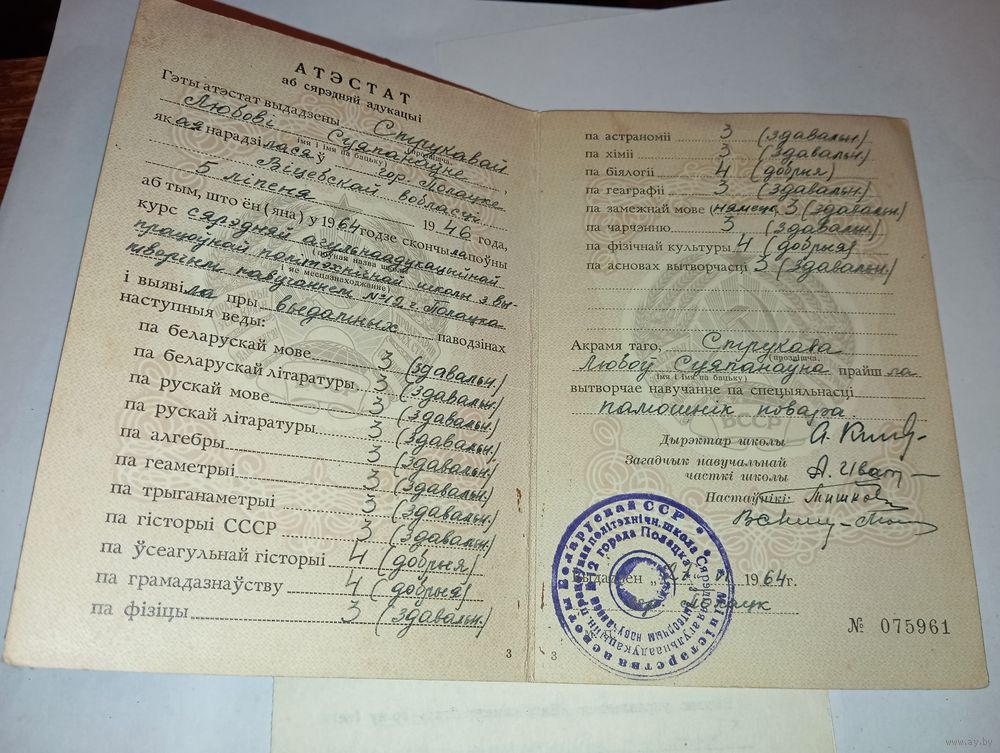 АТЭСТАТ
аб сярэдняй адукацыі
Гэты атэстат выдадзены Струкавай
(прозвішча,
Любові Сцяпанаўне
імя і імя па бацьку)
якая нарадзілася ў гор. Полацке
Віцебскай вобласці
5 ліпеня 1946 года,
аб тым, што ён (яна) у 1964 годзе скончыла поўны
курс сярэдняй агульнаадукацыйнай
(поўная назва школы
працоўнай політэхнічнай школы з вы-
і яе месцазнаходжанне)
творчым навучаннем №12 г. Полацка
і выявіла пры выдатных паводзінах
наступныя веды:
па беларускай мове 3 (здавальн.)
па беларускай літаратуры 3 (здавальн.)
па рускай мове 3 (здавальн.)
па рускай літаратуры 3 (здавальн.)
па алгебры 3 (здавальн.)
па геаметрыі 3 (здавальн.)
па трыганаметрыі 3 (здавальн.)
па гісторыі СССР 3 (здавальн.)
па ўсеагульнай гісторыі 4 (добрыя)
па грамадазнаўству 4 (добрыя)
па фізіцы 3 (здавальн.)
3
па астраноміі 3 (здавальн.)
па хіміі 3 (здавальн.)
па біялогіі 4 (добрыя)
па геаграфіі 3 (здавальн.)
па замежнай мове (нямецк.) 3 (здавальн.)
па чарчэнню 3 (здавальн.)
па фізічнай культуры 4 (добрыя)
па асновах вытворчасці 3 (здавальн.)
Акрамя таго, Струкава
(прозвішча,
Любоў Сцяпанаўна прайшла
імя і імя па бацьку)
вытворчае навучанне па спецыяльнасці
памошнік повара
БССР
Дырэктар школы
Загадчык навучальнай
часткі школы
Настаўнікі:
Выдадзен 1964 г.
Полацк
Міністэрства асветы Беларускай ССР
Сярэдняя агульнаадукацыйн. працоўная політэхнічн. школа
з вытворчым навучаннем №12 горада Полацка
№ 075961
3
www.ay.by